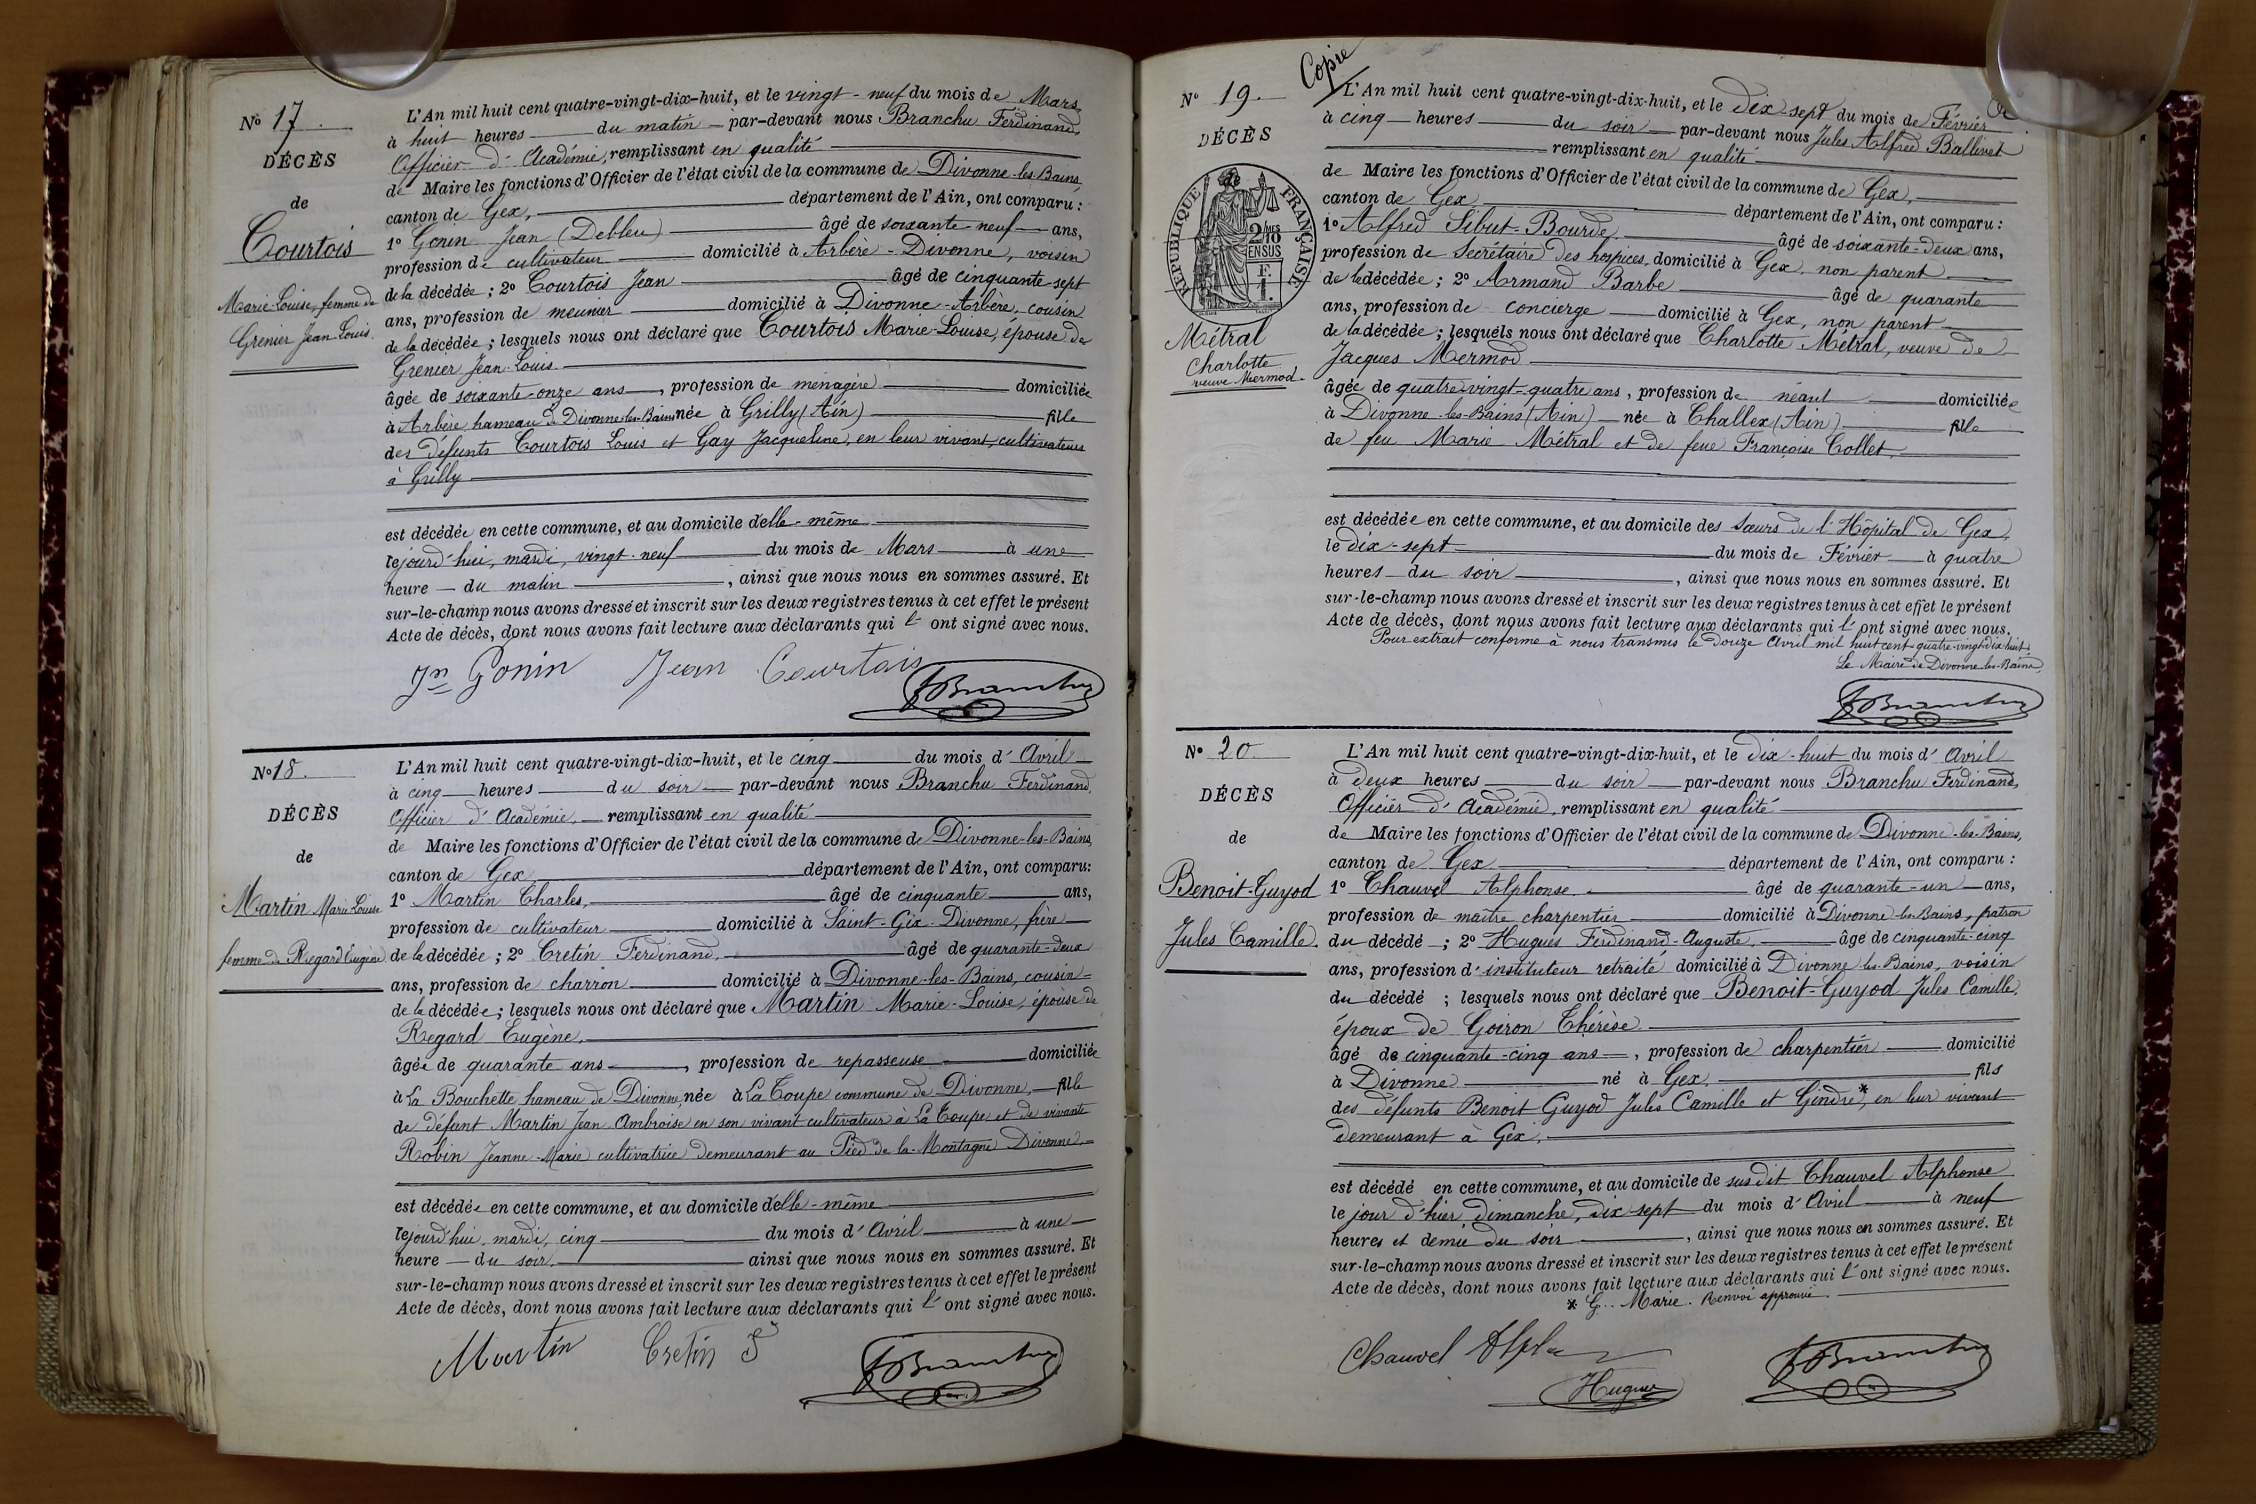 No 17.
DÉCÈS
de
Courtois
Marie-Louise, femme de
Grenier Jean-Louis.
L'An mil huit cent quatre-vingt-dix-huit, et le vingt-neuf du mois de Mars,
à huit heures du matin par-devant nous Branchu Ferdinand,
Officier d'Académie, remplissant en qualité
de Maire les fonctions d'Officier de l'état civil de la commune de Divonne-les-Bains,
canton de Gex, département de l'Ain, ont comparu :
1o Gonin Jean (Debleu) âgé de soixante-neuf ans,
profession de cultivateur domicilié à Arbère-Divonne, voisin
de la décédée ; 2o Courtois Jean âgé de cinquante-sept
ans, profession de meunier domicilié à Divonne-Arbère, cousin
de la décédée ; lesquels nous ont déclaré que Courtois Marie-Louise, épouse de
Grenier Jean-Louis.
âgée de soixante-onze ans, profession de ménagère domiciliée
à Arbère, hameau de Divonne-les-Bains née à Grilly (Ain) fille
des défunts Courtois Louis et Gay Jacqueline, en leur vivant, cultivateurs
à Grilly
est décédée en cette commune, et au domicile d'elle-même
lejourd'hui, mardi, vingt-neuf du mois de Mars à une
heure du matin, ainsi que nous nous en sommes assuré. Et
sur-le-champ nous avons dressé et inscrit sur les deux registres tenus à cet effet le présent
Acte de décès, dont nous avons fait lecture aux déclarants qui l' ont signé avec nous.
Jn Gonin Jean Courtois FBranchu
No 18.
DÉCÈS
de
Martin Marie Louise
femme de Regard Eugène
L'An mil huit cent quatre-vingt-dix-huit, et le cinq du mois d'Avril
à cinq heures du soir par-devant nous Branchu Ferdinand,
Officier d'Académie, remplissant en qualité
de Maire les fonctions d'Officier de l'état civil de la commune de Divonne-les-Bains,
canton de Gex département de l'Ain, ont comparu:
1o Martin Charles, âgé de cinquante ans,
profession de cultivateur domicilié à Saint-Gix-Divonne, frère
de la décédée ; 2o Cretin Ferdinand, âgé de quarante-deux
ans, profession de charron domicilié à Divonne-les-Bains, cousin
de la décédée ; lesquels nous ont déclaré que Martin Marie-Louise, épouse de
Regard Eugène.
âgée de quarante ans, profession de repasseuse domiciliée
à La Bouchette hameau de Divonne, née à La Toupe commune de Divonne, fille
de défunt Martin Jean Ambroise en son vivant cultivateur à La Toupe et de vivante
Robin Jeanne-Marie cultivatrice demeurant au Pied de la Montagne Divonne.
est décédée en cette commune, et au domicile d'elle-même
lejourd'hui, mardi, cinq du mois d'Avril à une
heure du soir, ainsi que nous nous en sommes assuré. Et
sur-le-champ nous avons dressé et inscrit sur les deux registres tenus à cet effet le présent
Acte de décès, dont nous avons fait lecture aux déclarants qui l' ont signé avec nous.
Martin Cretin F FBranchu
Copie
No 19.
DÉCÈS
de
RÉPUBLIQUE FRANÇAISE
2/10MES
EN SUS
Métral
Charlotte
veuve Mermod.
L'An mil huit cent quatre-vingt-dix-huit, et le dix-sept du mois de Février
à cinq heures du soir par-devant nous Jules Alfred Ballivet
remplissant en qualité
de Maire les fonctions d'Officier de l'état civil de la commune de Gex,
canton de Gex département de l'Ain, ont comparu :
1o Alfred Sibut-Bourde âgé de soixante-deux ans,
profession de Secrétaire des hospices, domicilié à Gex, non parent
de la décédée ; 2o Armand Barbe âgé de quarante
ans, profession de concierge domicilié à Gex, non parent
de la décédée ; lesquels nous ont déclaré que Charlotte Métral, veuve de
Jacques Mermod
âgée de quatre-vingt-quatre ans, profession de néant domiciliée
à Divonne-les-Bains (Ain) née à Challex (Ain) fille
de feu Marie Métral et de feue Françoise Collet.
est décédée en cette commune, et au domicile des Sœurs de l'Hôpital de Gex,
le dix-sept du mois de Février à quatre
heures du soir, ainsi que nous nous en sommes assuré. Et
sur-le-champ nous avons dressé et inscrit sur les deux registres tenus à cet effet le présent
Acte de décès, dont nous avons fait lecture aux déclarants qui l'ont signé avec nous.
Pour extrait conforme à nous transmis le douze Avril mil huit cent quatre-vingt-dix-huit.
Le Maire de Divonne-les-Bains,
FBranchu
No 20.
DÉCÈS
de
Benoit-Guyod
Jules Camille.
L'An mil huit cent quatre-vingt-dix-huit, et le dix-huit du mois d'Avril
à deux heures du soir par-devant nous Branchu Ferdinand,
Officier d'Académie, remplissant en qualité
de Maire les fonctions d'Officier de l'état civil de la commune de Divonne-les-Bains,
canton de Gex département de l'Ain, ont comparu :
1o Chauvel Alphonse âgé de quarante-un ans,
profession de maître charpentier domicilié à Divonne-les-Bains, patron
du décédé ; 2o Hugues Ferdinand-Auguste, âgé de cinquante-cinq
ans, profession d'instituteur retraité domicilié à Divonne-les-Bains, voisin
du décédé ; lesquels nous ont déclaré que Benoit-Guyod Jules Camille,
époux de Goiron Thérèse
âgé de cinquante-cinq ans, profession de charpentier domicilié
à Divonne né à Gex, fils
des défunts Benoit Guyod Jules Camille et Gindre*, en leur vivant
demeurant à Gex.
est décédé en cette commune, et au domicile de susdit Chauvel Alphonse
le jour d'hier, dimanche, dix-sept du mois d'Avril à neuf
heures et demie du soir, ainsi que nous nous en sommes assuré. Et
sur-le-champ nous avons dressé et inscrit sur les deux registres tenus à cet effet le présent
Acte de décès, dont nous avons fait lecture aux déclarants qui l'ont signé avec nous.
* G.. Marie. Renvoi approuvé.
Chauvel Alph
Hugues FBranchu